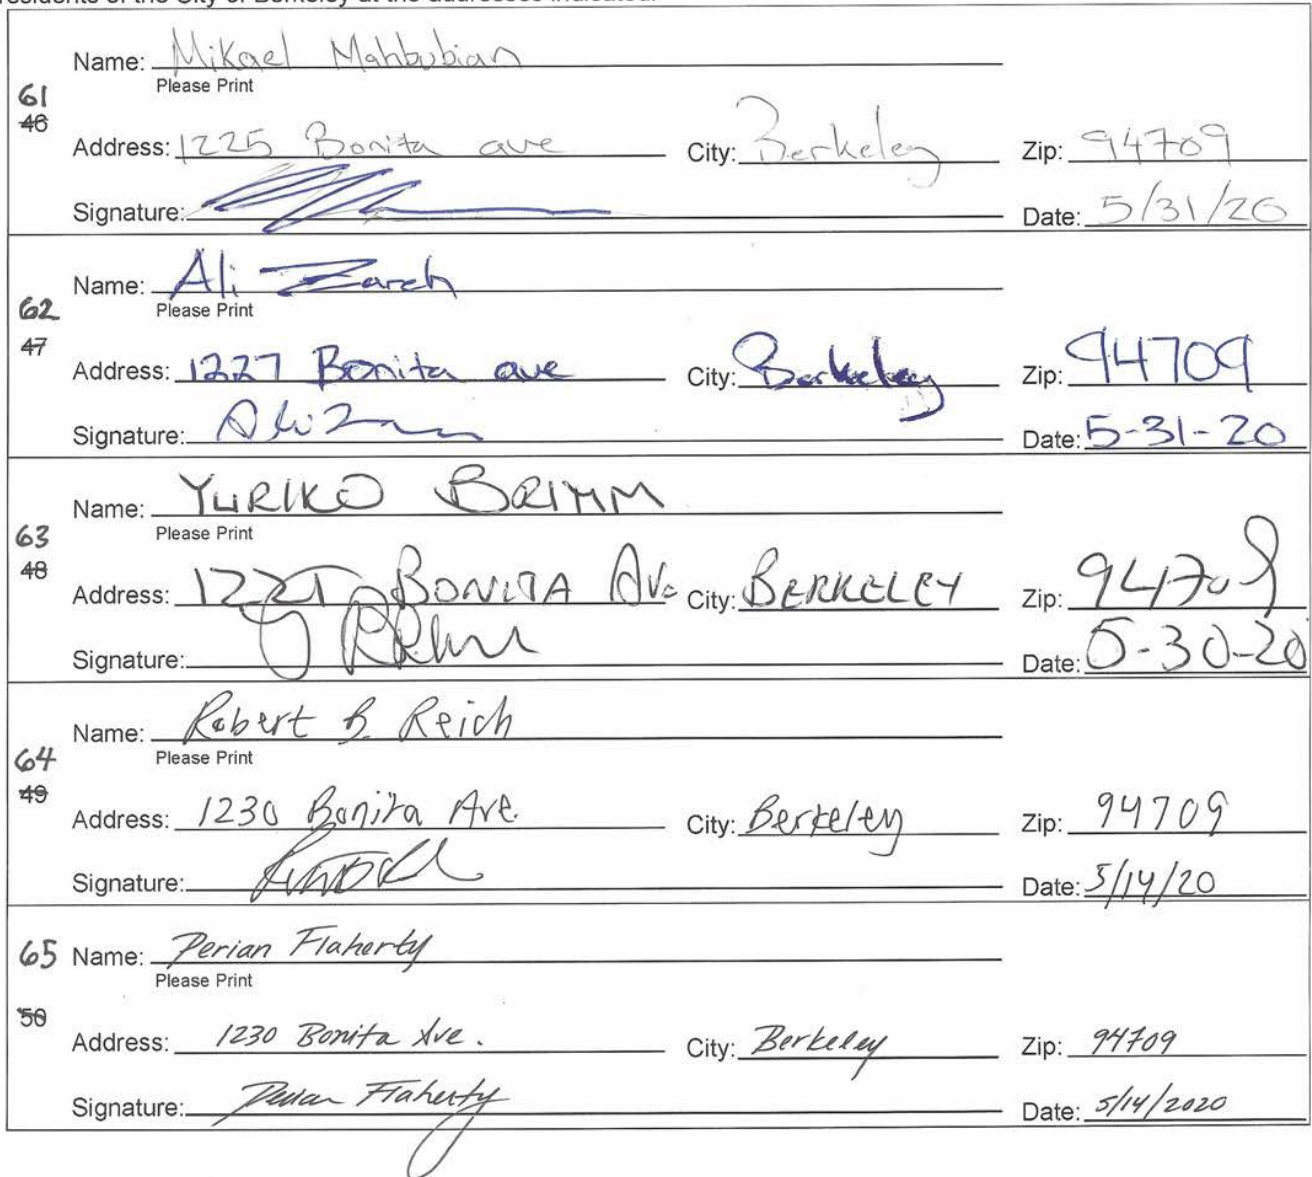 residents of the City of Berkeley at the addresses indicated.
Name: Mikael Mahbubian
Please Print
61
46
Address: 1225 Bonita ave City: Berkeley Zip: 94709
Signature: Date: 5/31/20
Name: Ali Zareh
Please Print
62
47
Address: 1227 Bonita ave City: Berkeley Zip: 94709
Signature: Date: 5-31-20
Name: YURIKO BRIMM
Please Print
63
48
Address: BONITA AVe City: BERKELEY Zip: 94709
Signature: Date: 5-30-20
Name: Robert B. Reich
Please Print
64
49
Address: 1230 Bonita Ave. City: Berkeley Zip: 94709
Signature: Date: 5/14/20
65 Name: Perian Flaherty
Please Print
50
Address: 1230 Bonita Ave. City: Berkeley Zip: 94709
Signature: Perian Flaherty Date: 5/14/2020